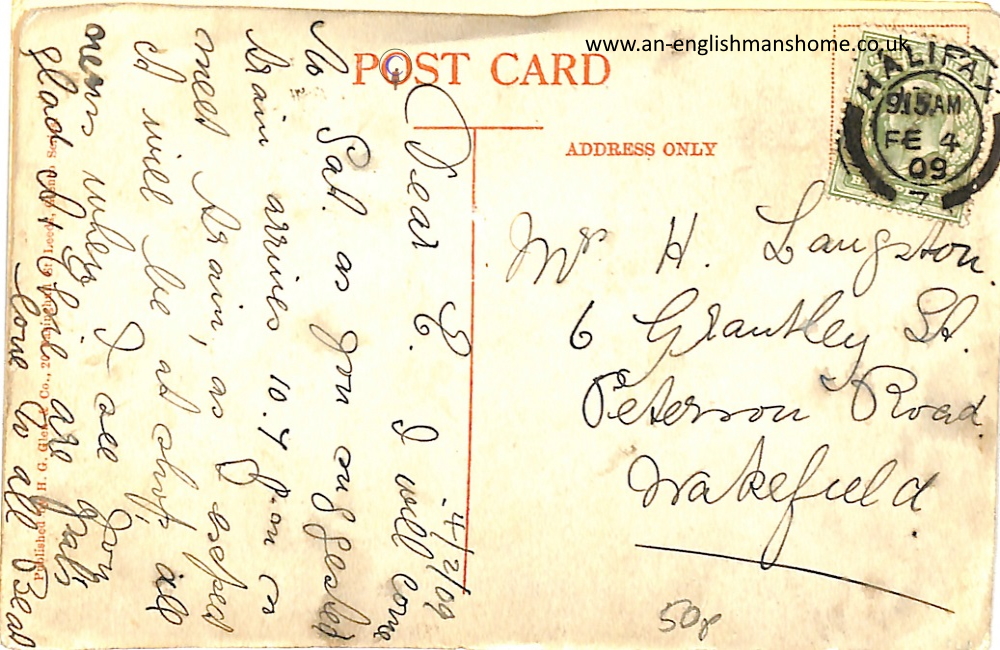 www.an-englishmanshome.co.uk
POST CARD
ADDRESS ONLY
HALIFAX
9.15 AM
FE 4
09
7
4/2/09
Dear E. I will come
to Sat. as you suggested
train arrives 10.4 p.m
meet train, as
will be at shop, all
news when I see you
glad are
love to all
Mr H. Langston.
6 Grantley St.
Peterson Road.
Wakefield.
50p
Published by H. G. Glen & Co., 20 St Leeds,